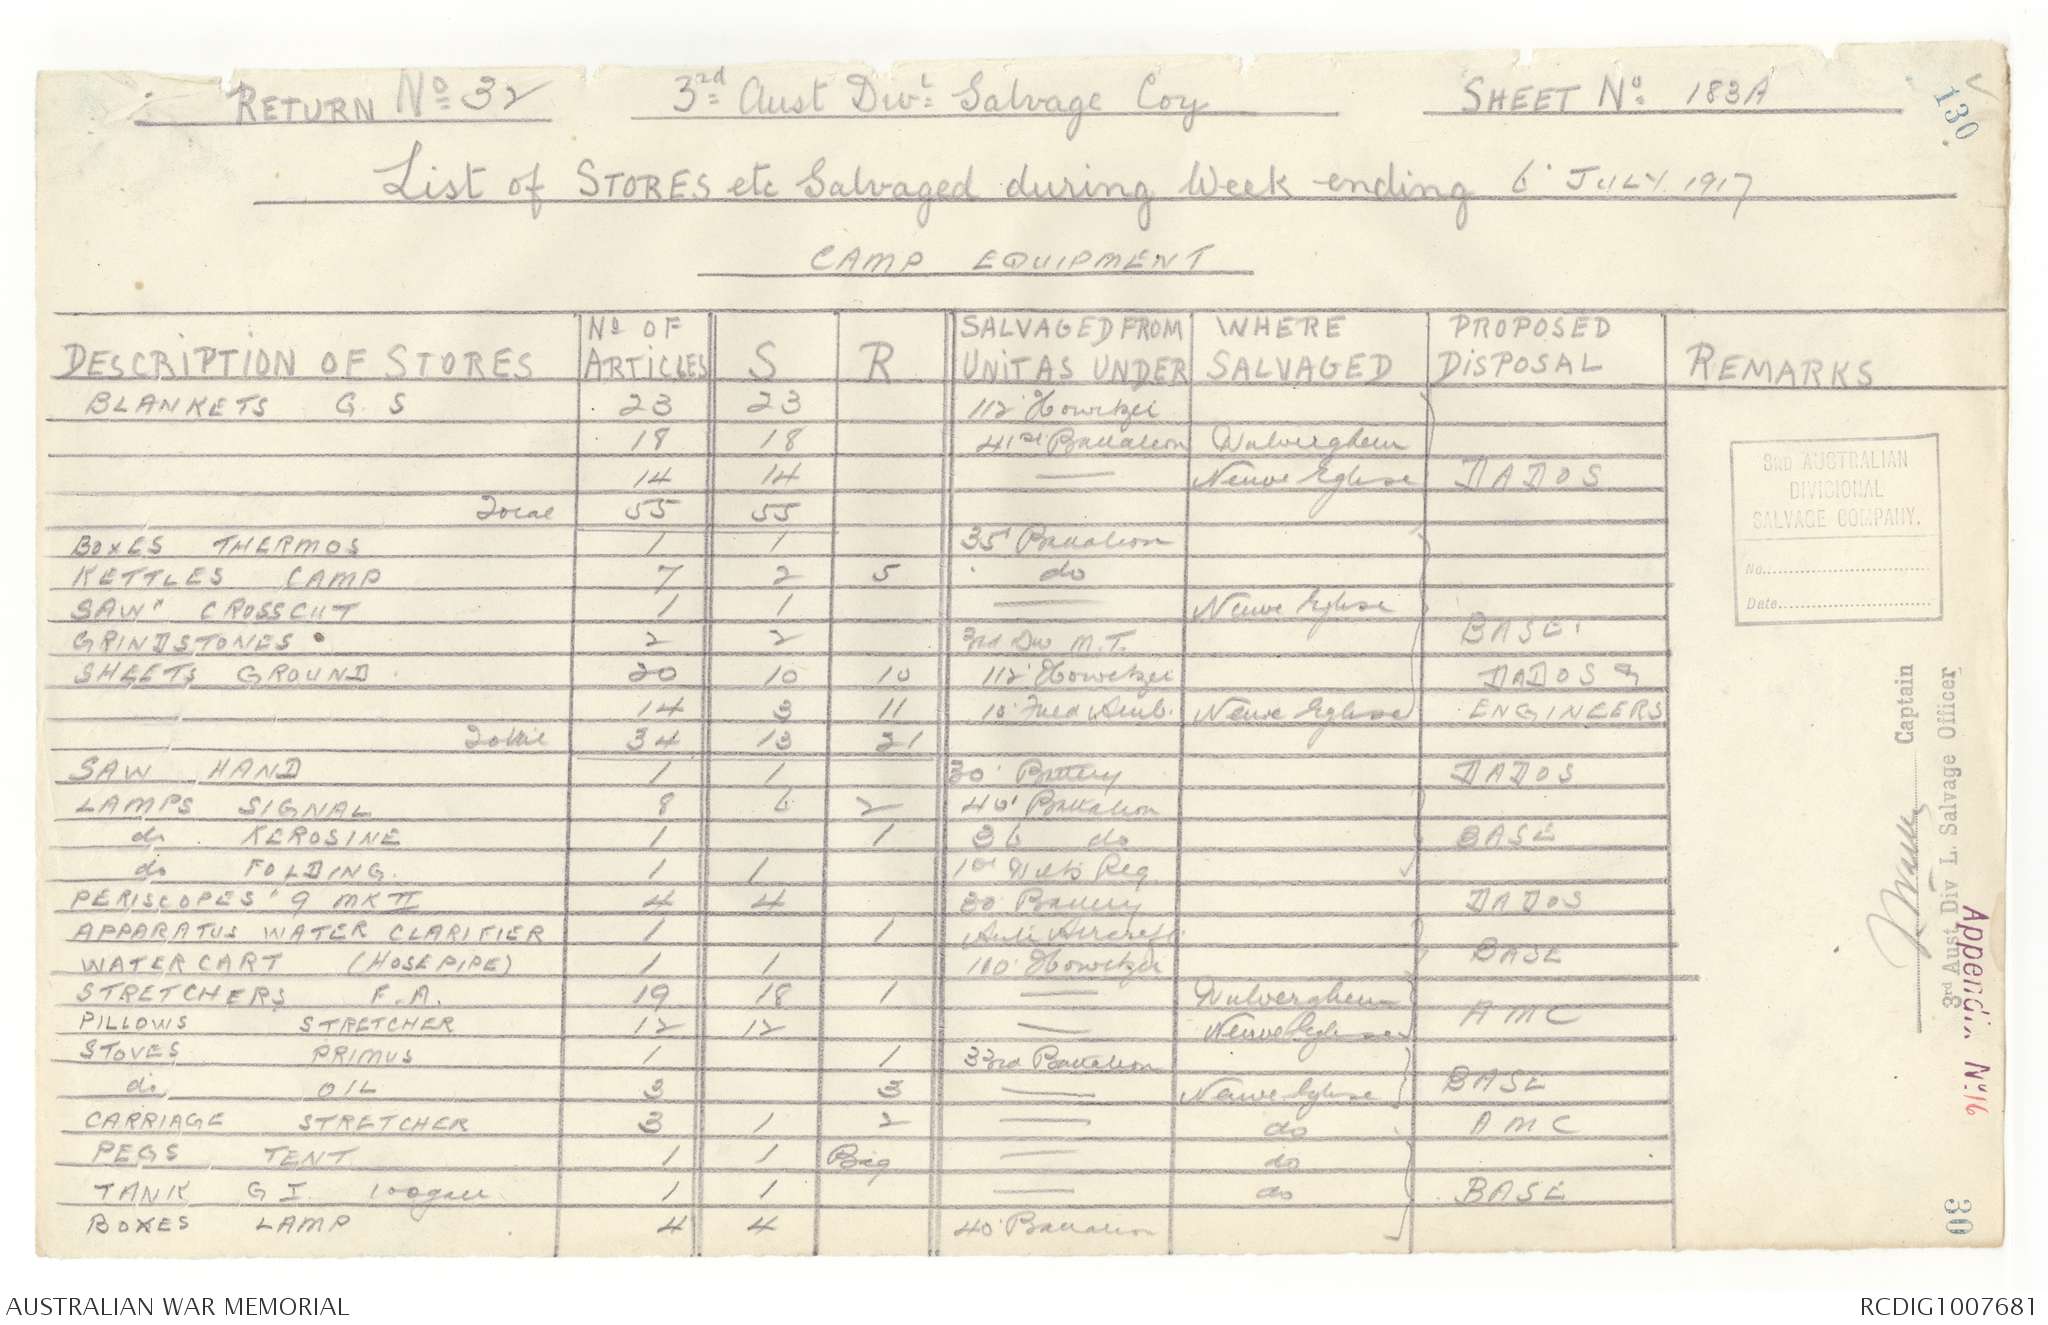 RETURN No 32 3rd Aust Divl Salvage Coy SHEET No 183A
130
List of STORES etc Salvaged during Week ending 6' JULY 1917
CAMP EQUIPMENT
DESCRIPTION OF STORES No OF ARTICLES S R SALVAGED FROM UNIT AS UNDER WHERE SALVAGED PROPOSED DISPOSAL REMARKS
BLANKETS G.S 23 23 112' Howitzer
18 18 41st Battalion Wulverghem
14 14 — Neuve Eglise DADOS
Total 55 55
BOXES THERMOS 1 1 35' Battalion
KETTLES CAMP 7 2 5 do
SAW" CROSSCUT 1 1 — Neuve Eglise
GRINDSTONES 2 2 3rd Div M.T. BASE.
SHEETS GROUND 20 10 10 112' Howitzer DADOS &
14 3 11 10' Field Amb. Neuve Eglise ENGINEERS
Total 34 13 21
SAW HAND 1 1 30' Battery DADOS
LAMPS SIGNAL 8 6 2 40' Battalion
do KEROSINE 1 1 36 do BASE
do FOLDING. 1 1 1st Wilts Reg
PERISCOPES "9 MK II 4 4 30' Battery DADOS
APPARATUS WATER CLARIFIER 1 1 Anti Aircraft
WATER CART (HOSEPIPE) 1 1 110' Howitzer BASE
STRETCHERS F.A. 19 18 1 — Wulverghem
PILLOWS STRETCHER 12 12 — Neuve Eglise AMC
STOVES PRIMUS 1 1 33rd Battalion
do OIL 3 3 — Neuve Eglise BASE
CARRIAGE STRETCHER 3 1 2 — do AMC
PEGS TENT 1 1 Bag — do
TANK G I 100 gall 1 1 — do BASE
BOXES LAMP 4 4 40' Battalion
3RD AUSTRALIAN
DIVISIONAL
SALVAGE COMPANY.
No.
Date
Captain
3rd Aust. Div L. Salvage Officer
Appendix No 16
30
AUSTRALIAN WAR MEMORIAL
RCDIG1007681